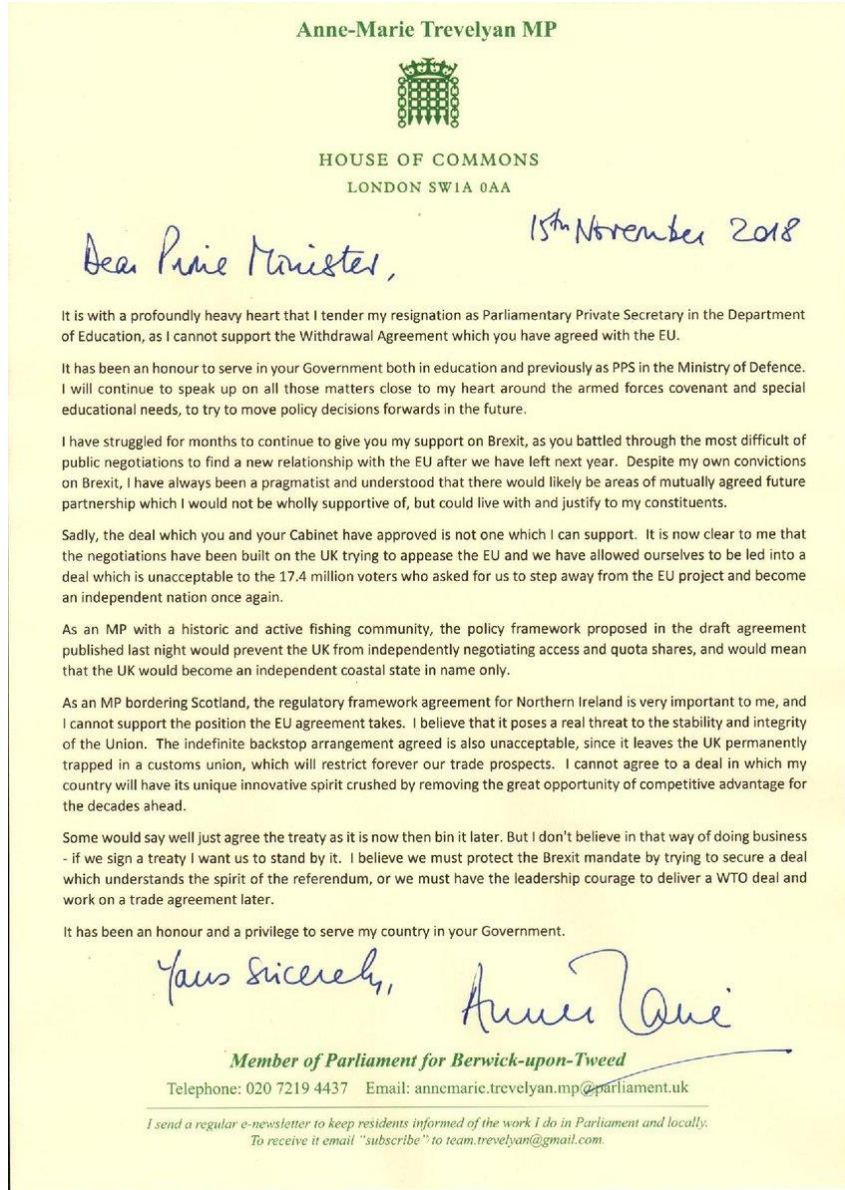 Anne-Marie Trevelyan MP
HOUSE OF COMMONS
LONDON SW1A 0AA
15th November 2018
Dear Prime Minister,
It is with a profoundly heavy heart that I tender my resignation as Parliamentary Private Secretary in the Department
of Education, as I cannot support the Withdrawal Agreement which you have agreed with the EU.
It has been an honour to serve in your Government both in education and previously as PPS in the Ministry of Defence.
I will continue to speak up on all those matters close to my heart around the armed forces covenant and special
educational needs, to try to move policy decisions forwards in the future.
I have struggled for months to continue to give you my support on Brexit, as you battled through the most difficult of
public negotiations to find a new relationship with the EU after we have left next year. Despite my own convictions
on Brexit, I have always been a pragmatist and understood that there would likely be areas of mutually agreed future
partnership which I would not be wholly supportive of, but could live with and justify to my constituents.
Sadly, the deal which you and your Cabinet have approved is not one which I can support. It is now clear to me that
the negotiations have been built on the UK trying to appease the EU and we have allowed ourselves to be led into a
deal which is unacceptable to the 17.4 million voters who asked for us to step away from the EU project and become
an independent nation once again.
As an MP with a historic and active fishing community, the policy framework proposed in the draft agreement
published last night would prevent the UK from independently negotiating access and quota shares, and would mean
that the UK would become an independent coastal state in name only.
As an MP bordering Scotland, the regulatory framework agreement for Northern Ireland is very important to me, and
I cannot support the position the EU agreement takes. I believe that it poses a real threat to the stability and integrity
of the Union. The indefinite backstop arrangement agreed is also unacceptable, since it leaves the UK permanently
trapped in a customs union, which will restrict forever our trade prospects. I cannot agree to a deal in which my
country will have its unique innovative spirit crushed by removing the great opportunity of competitive advantage for
the decades ahead.
Some would say well just agree the treaty as it is now then bin it later. But I don't believe in that way of doing business
- if we sign a treaty I want us to stand by it. I believe we must protect the Brexit mandate by trying to secure a deal
which understands the spirit of the referendum, or we must have the leadership courage to deliver a WTO deal and
work on a trade agreement later.
It has been an honour and a privilege to serve my country in your Government.
Yours Sincerely,
Anne Marie
Member of Parliament for Berwick-upon-Tweed
Telephone: 020 7219 4437 Email: annemarie.trevelyan.mp@parliament.uk
I send a regular e-newsletter to keep residents informed of the work I do in Parliament and locally.
To receive it email "subscribe" to team.trevelyan@gmail.com.